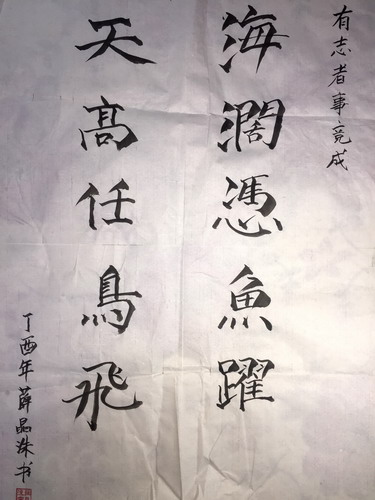 有志者事竟成
海濶憑魚躍
天高任鳥飛
丁酉年薛晶洙书